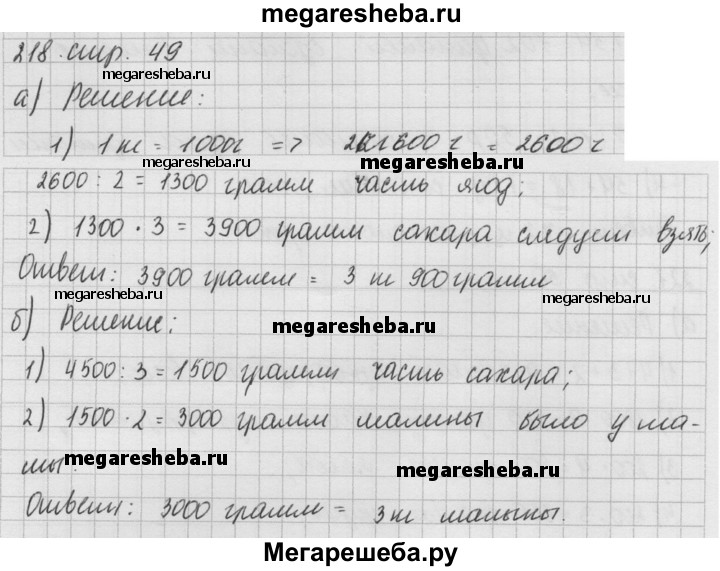 megaresheba.ru
218. стр. 49
megaresheba.ru
а) Решение:
1) 1 кг = 1000г => 2кг600 г = 2600 г
megaresheba.ru megaresheba.ru
2600 : 2 = 1300 грамм часть ягод;
2) 1300 · 3 = 3900 грамм сахара следует взять;
Ответ: 3900 грамм = 3 кг 900 грамм
megaresheba.ru megaresheba.ru
б) Решение: megaresheba.ru
1) 4500 : 3 = 1500 грамм часть сахара;
2) 1500 · 2 = 3000 грамм малины было у ма-
мы. megaresheba.ru megaresheba.ru
Ответ: 3000 грамм = 3 кг малины.
Мегарешеба.ру